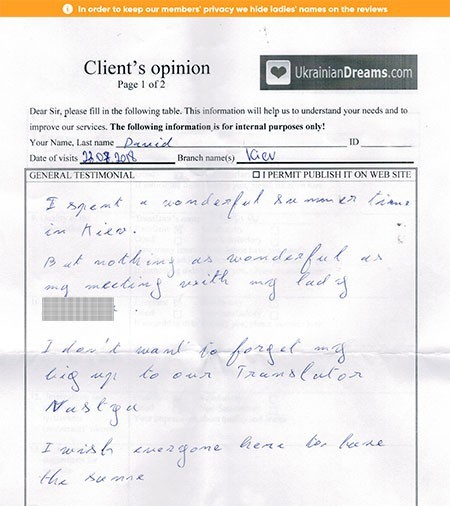 In order to keep our members' privacy we hide ladies' names on the reviews
Client's opinion
Page 1 of 2
UkrainianDreams.com
Dear Sir, please fill in the following table. This information will help us to understand your needs and to
improve our services. The following information is for internal purposes only!
Your Name, Last name David ID
Date of visits 23.07.2018 Branch name(s) Kiev
GENERAL TESTIMONIAL ☐ I PERMIT PUBLISH IT ON WEB SITE
I spent a wonderful summer time
in Kiev.
But nothing as wonderful as
my meeting with my lady
.
I don't want to forget my
big up to our Translator
Nastya
I wish everyone here to have
the same